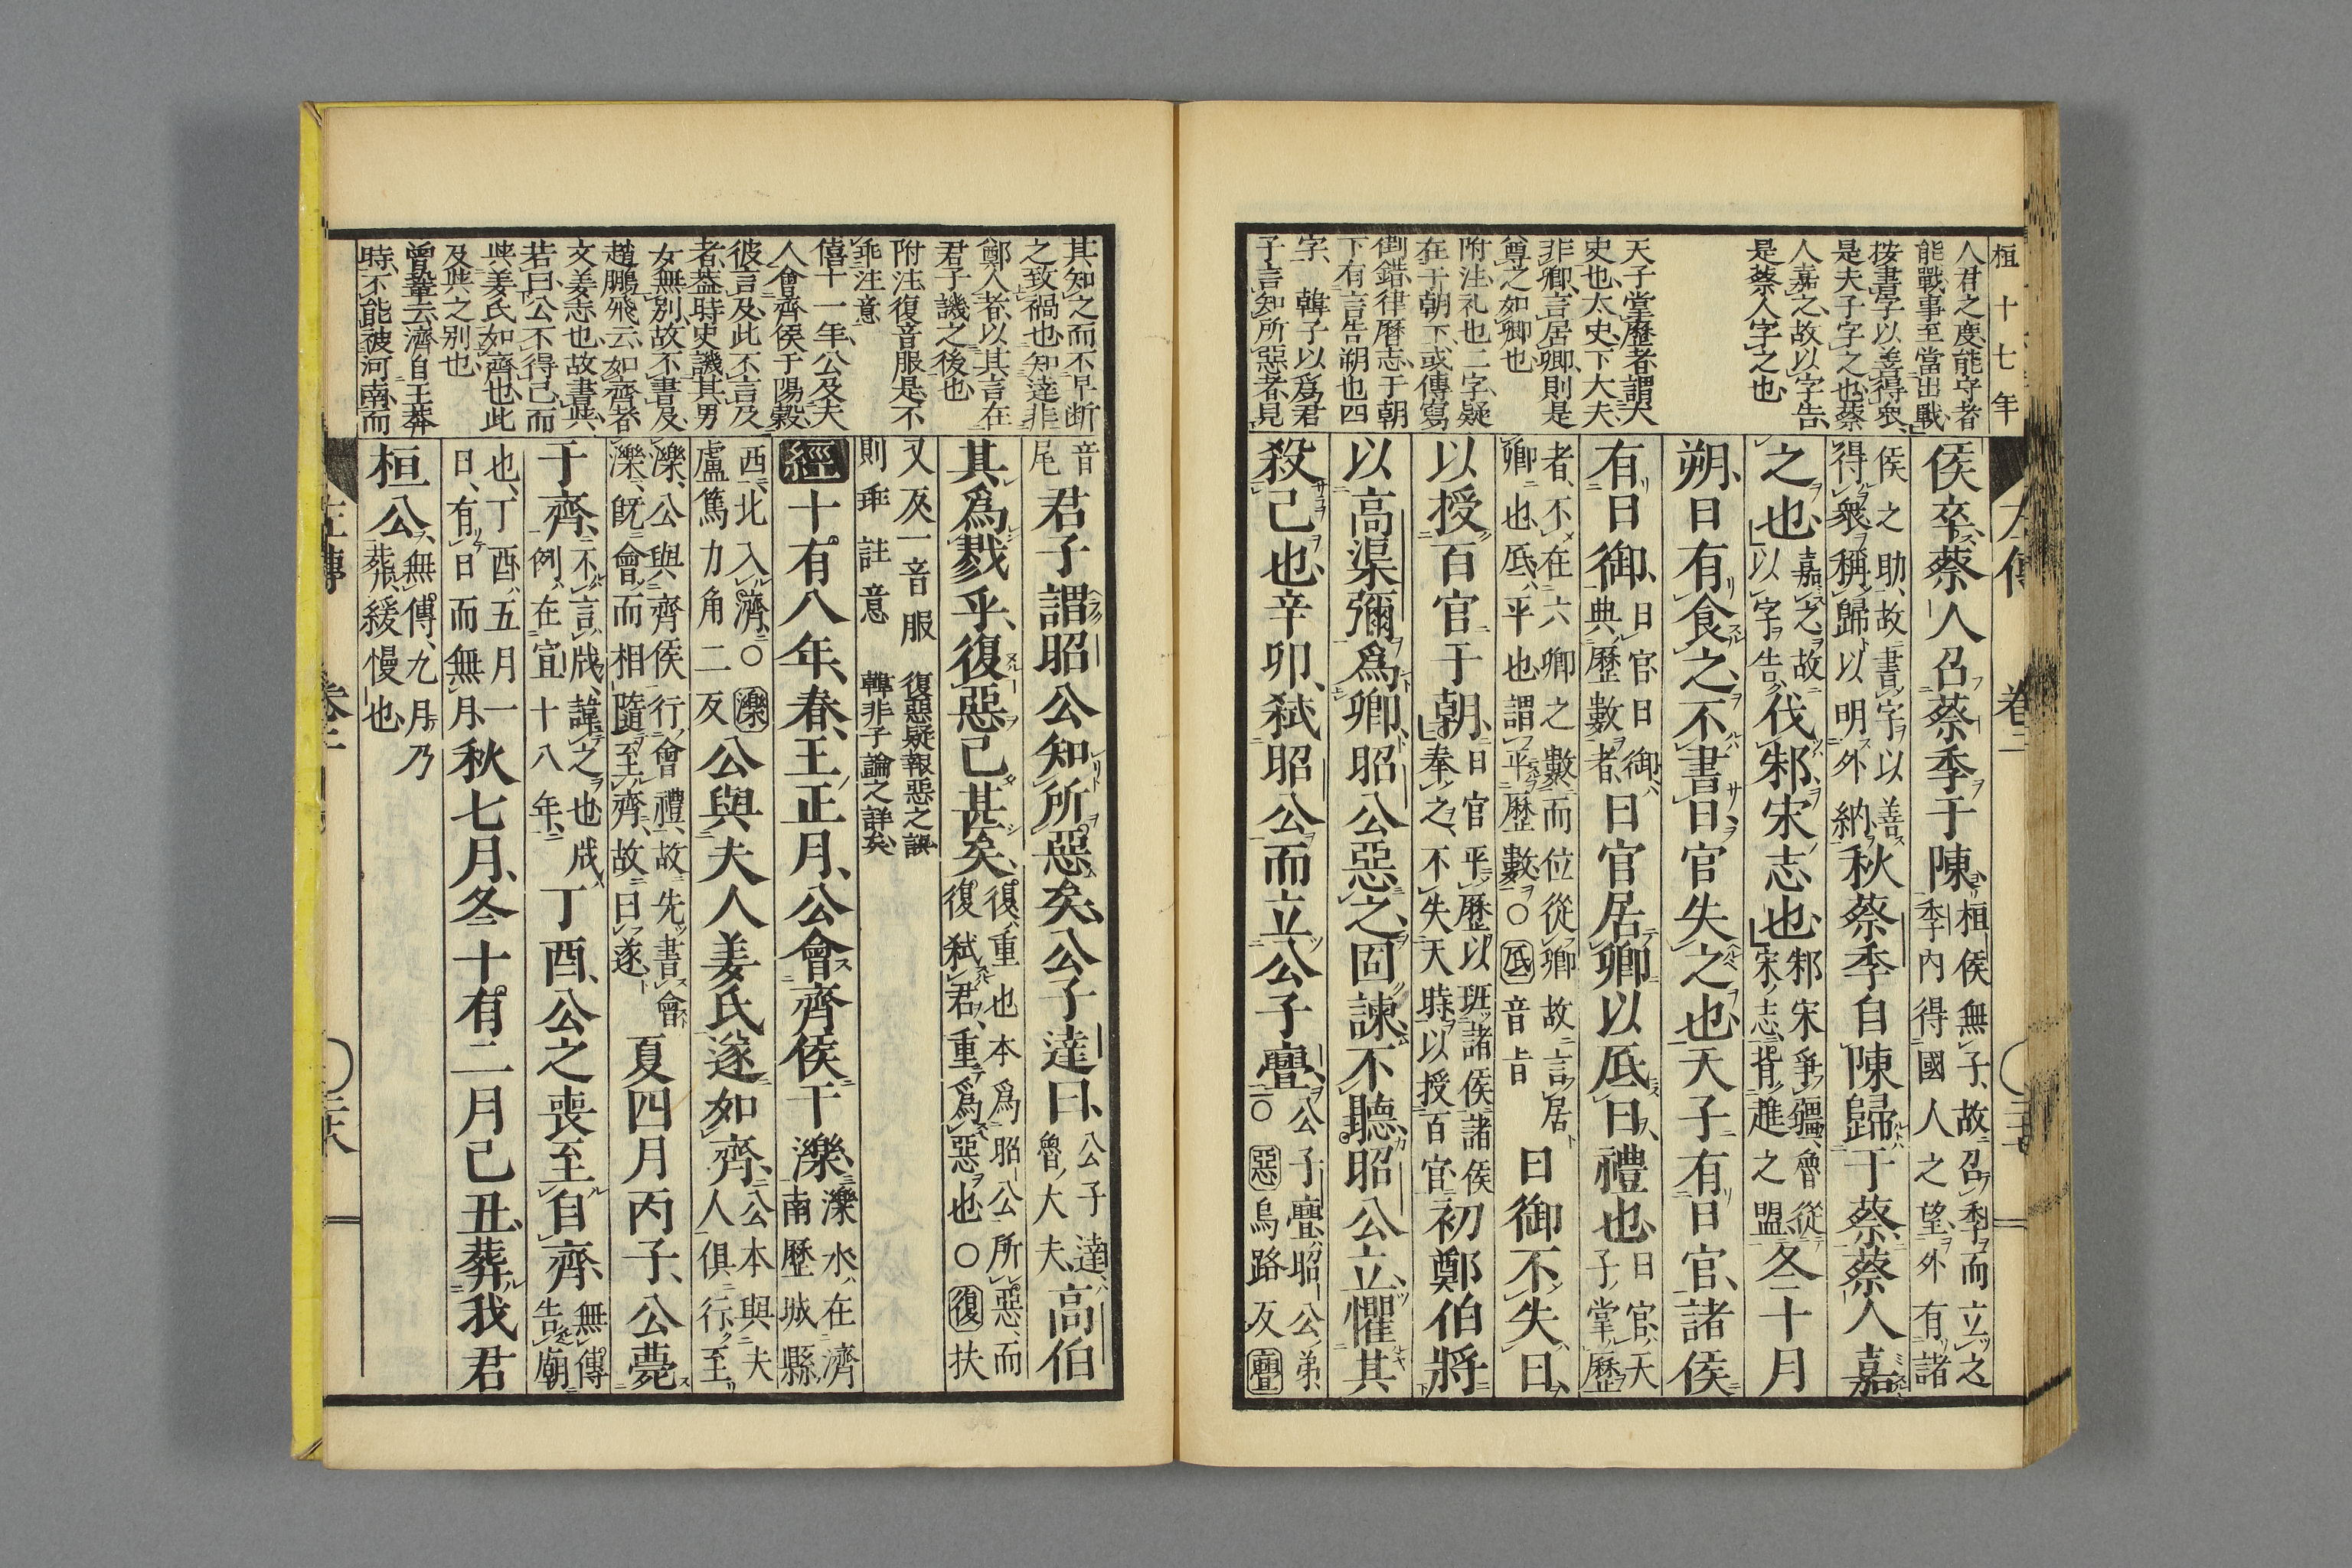 桓十七年
人君之度能守者
能戰事至當出戰
按書字以善得衆
是夫子字之也蔡
人嘉之故以字告
是蔡人字之也
天子掌歷者謂大
史也太史下大夫
非卿言居卿則是
尊之如卿也
附注礼也二字疑
在于朝下或傳寫
倒錯律暦志于朝
下有言告朔也四
字韓子以爲君
子言知所惡者見
侯卒蔡人召蔡季于陳桓侯無子故召季而立之
季内得國人之望外有諸
侯之助故書字以善
得衆稱歸以明外納秋蔡季自陳歸于蔡蔡人嘉
之也嘉之故
以字告伐邾宋志也邾宋爭疆魯從
宋志背趡之盟冬十月
朔日有食之不書日官失之也天子有日官諸侯
有日御日官日御
典歷數者日官居卿以厎日禮也日官天
子掌歷
者不在六卿之數而位從卿故言居
卿也厎平也謂平歷數○厎音旨日御不失日
以授百官于朝日官平歷以班諸侯諸侯
奉之不失天時以授百官初鄭伯將
以高渠彌爲卿昭公惡之固諫不聽昭公立懼其
殺己也辛卯弑昭公而立公子亹公子亹昭公弟
○惡烏路反亹
左傳 卷二
其知之而不早断
之致禍也知達非
鄭人者以其言在
君子譏之後也
附注復音服是不
乖注意
僖十一年公及夫
人會齊侯于陽穀
彼言及此不言及
者蓋時史譏其男
女無別故不書及
趙鵬飛云如齊者
文姜恚也故書與
若曰公不得已而
與姜氏如齊也此
及與之别也
曾鞏云濟自王莽
時不能被河南而
音
尾君子謂昭公知所惡矣公子達曰公子達
魯大夫高伯
其爲戮乎復惡已甚矣復重也本爲昭公所惡而
復弑君重爲惡也○復扶
又反一音服
則乖註意復惡疑報惡之誤
韓非子論之詳矣
經十有八年春王正月公會齊侯于濼濼水在濟
南歷城縣
西北入濟○濼
盧篤力角二反公與夫人姜氏遂如齊公本與夫
人俱行至
濼公與齊侯行會禮故先書會
濼旣會而相隨至齊故曰遂夏四月丙子公薨
于齊不言戕諱之也戕
例在宣十八年丁酉公之喪至自齊無傳
告廟
也丁酉五月一
日有日而無月秋七月冬十有二月己丑葬我君
桓公無傳九月乃
葬緩慢也
左傳 卷二